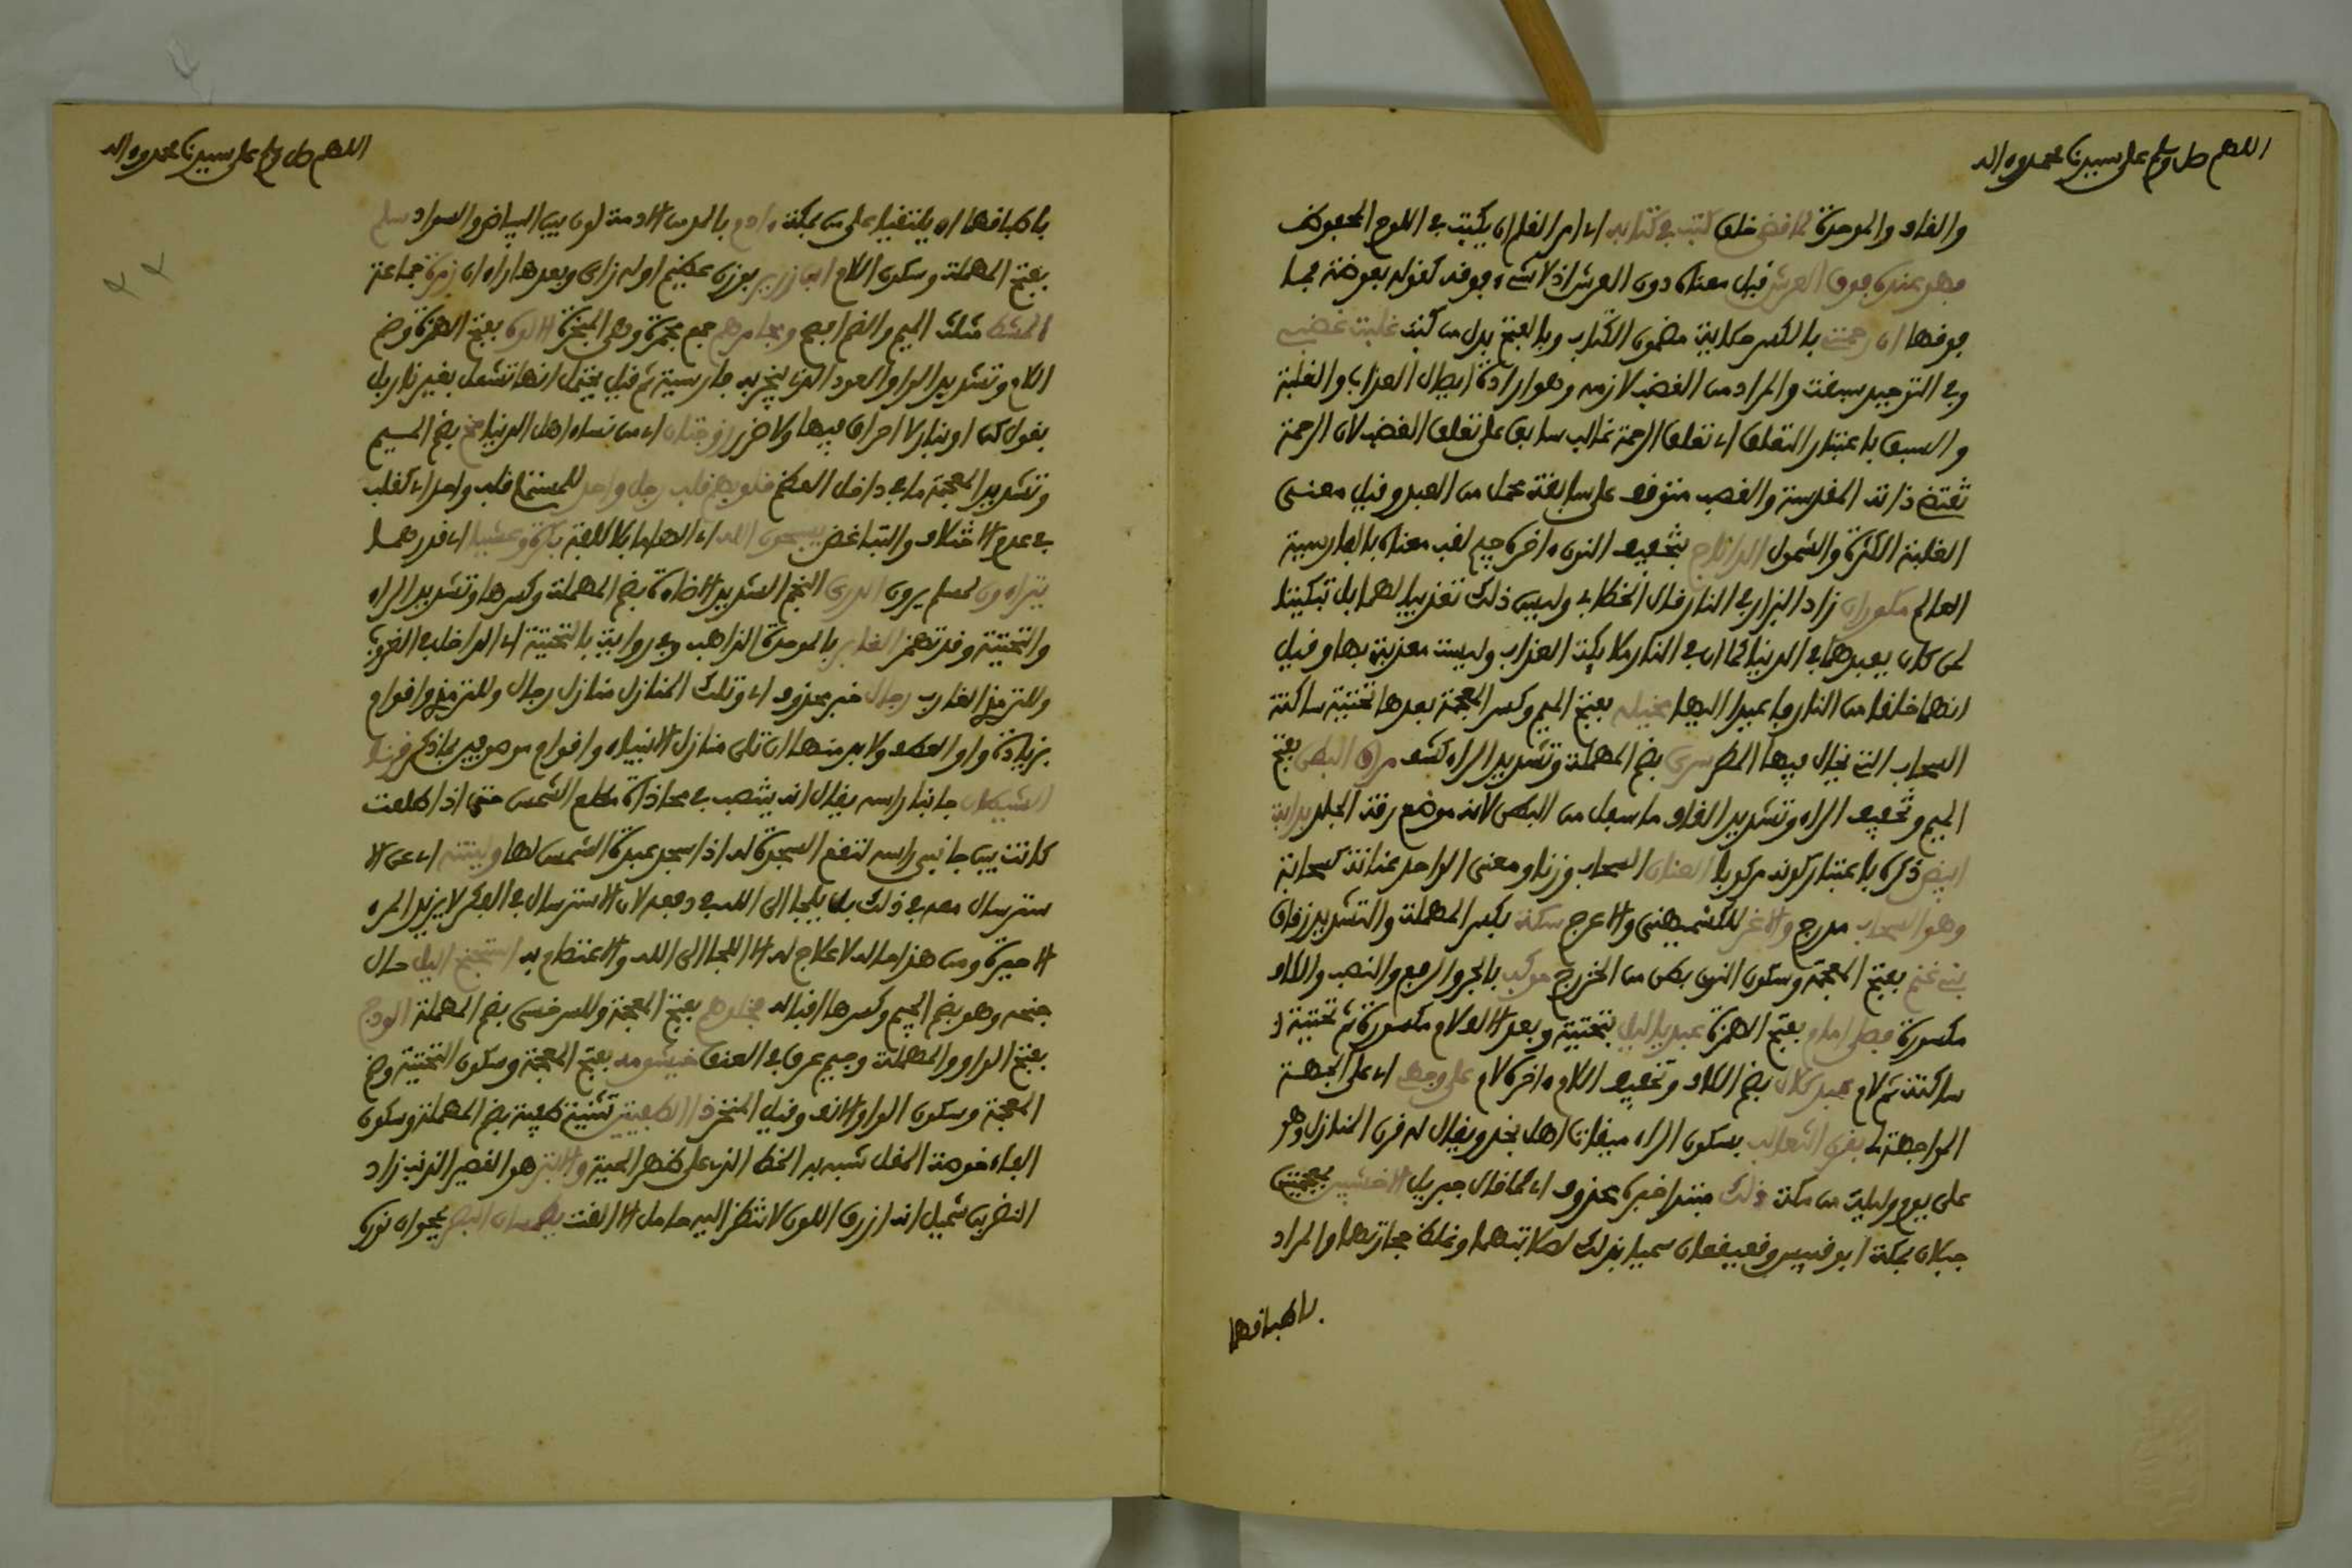 اللهم صل وسلم على سيدنا محمد وءاله
والقاف والموحدة لما قضى خلق كتب في كتابه اي امر القلم ان يكتب في اللوح المحفوظ
فهو عنده فوق العرش قيل معناه دون العرش اذ لا شيء فوقه كقوله بعوضة فما
فوقها ان رحمتي بالكسر حكاية مضمون الكتاب وبالفتح بدل من كتب غلبت غضبي
وفي التوحيد سبقت والمراد من الغضب لازمه وهو ارادة ايصال العذاب والغلبة
والسبق باعتبار التعلق اي تعلق الرحمة غالب سابق على تعلق الغضب لان الرحمة
تقتضي ذاته المقدسة والغضب متوقف على سابقة عمل من العبد وقيل معنى
الغلبة الكثرة والشمول الداناج بتخفيف النون ءاخره جيم لقب معناه بالفارسية
العالم مكوران زاد البزار في النار قال الخطابي وليس ذلك تعذيبا لهما بل تبكيتا
لمن كان يعبدهما في الدنيا كما ان في النار ملائكة العذاب وليست معذبة بها وقيل
انهما خلقا من النار فاعيدا اليها مخيلة بفتح الميم وكسر المعجمة بعدها تحتية ساكنة
السحاب التي يخال فيها المطر سري بضم المهملة وتشديد الراء كشف مراق البطن بفتح
الميم وتخفيف الراء وتشديد القاف ما سفل من البطن لانه موضع رقة الجلد بدابة
ابيض ذكره باعتبار كونه مركوبا العنان السحاب وزنا ومعنى الواحد عنانة كسحابة
وهو السحاب مدرج والاغر للكشميهني والاعرج سكة بكسر المهملة والتشديد زقاق
بني غنم بفتح المعجمة وسكون النون بطن من الخزرج موكب بالجر والرفع والنصب والكاف
مكسورة فصلى امام بفتح الهمزة عبد ياليل بتحتية وبعد الالف لام مكسورة ثم تحتية
ساكنة ثم لام عبد كلال بضم الكاف وتخفيف اللام ءاخره لام على وجهي اي على الجهة
المواجهة لي بقرن الثعالب بسكون الراء ميقات اهل نجد ويقال له قرن المنازل وهو
على يوم وليلة من مكة ذلك مبتدا خبره محذوف اي كما قال جبريل الاخشبين بمعجمتين
جبلان بمكة ابو قبيس وقعيقعان سميا بذلك لصلابتهما وغلظ حجارتهما والمراد
باطباقهما
اللهم صل وسلم على سيدنا محمد وءاله
باطباقهما ان يلتقيا على من بمكة ءادم بالمد من الادمة لون بين البياض والسواد سلم
بفتح المهملة وسكون اللام ابن زرير بوزن عظيم اوله زاي وبعدها راءان زمرة جماعة
المشط مثلث الميم والضم افصح ومجامرهم جمع مجمرة وهي المبخرة الالوة بفتح الهمزة وضم
اللام وتشديد الواو العود الذي يتبخر به فارسية ثم قيل يحتمل انها تشعل بغير نار بل
بقول كن او بنار لا احراق فيها ولا ضرر زوجتان اي من نساء اهل الدنيا مخ بضم الميم
وتشديد المعجمة ما في داخل العظم قلوبهم قلب رجل واحد للمستملي قلب واحد اي كقلب
في عدم الاختلاف والتباغض يسبحون الله اي الهاما بلا كلفة بكرة وعشيا اي قدرهما
يتراءون لمسلم يرون الدري النجم الشديد الاضاءة بضم المهملة وكسرها وتشديد الراء
والتحتية وقد تهمز الغابر بالموحدة الذاهب وفي رواية بالتحتية اي الداخل في الغروب
وللترمذي الغارب رجال خبر محذوف اي وتلك المنازل منازل رجال وللترمذي واقوام
بزيادة واو العطف ولا بد منها ان تلي منازل الانبياء واقوام موصوفين بما ذكر قرنا
الشيطان جانبا راسه يقال انه ينتصب في محاذاة مطلع الشمس حتى اذا طلعت
كانت بين جانبي راسه لتقع السجدة له اذا سجد عبدة الشمس لها ولينته اي عن الا
سترسال معه في ذلك بل يلجا الى الله في دفعه لان الاسترسال في الفكر لا يزيد المرء
الا حيرة ومن هذا حاله لا علاج له الا اللجا الى الله والاعتصام به استجنح الليل حال
جنحه وهو بضم الجيم وكسرها اقباله فخلوهم بفتح المعجمة وللسرخسي بضم المهملة الودج
بفتح الواو والمهملة وجيم عرق في العنق خيشومه بفتح المعجمة وسكون التحتية وضم
المعجمة وسكون الواو الانف وقيل المنخر ذا الطفيتين تثنية طفية بضم المهملة وسكون
الفاء خوصة المقل شبه به الخط الذي على ظهر الحية والابتر هو القصير الذنب زاد
النضر بن شميل انه ازرق اللون لا تنظر اليه حامل الا القت يطمسان البصر يمحوان نوره